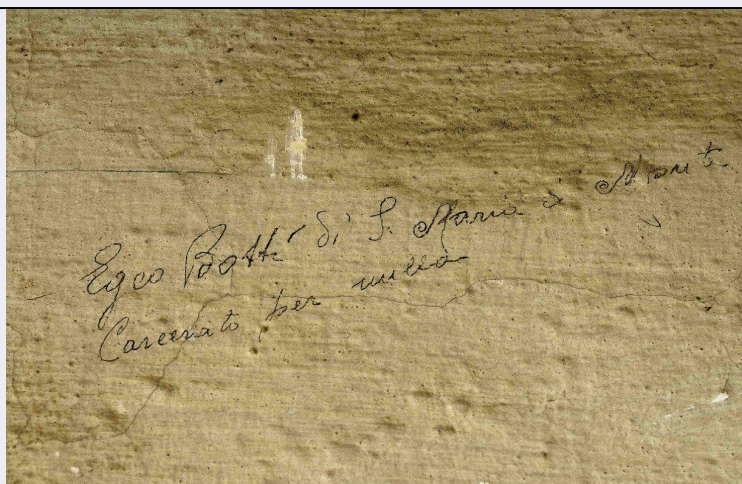 Egeo Botti di S. Maria a Monte
Carcerato per nulla